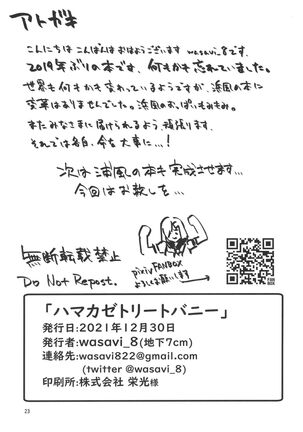 アトガキ
こんにちは こんばんは おはようございます wasavi_8です。
2019年ぶりの本です、何もかも忘れていました。
世界も何もかも変わっているようですが、浜風の本に
変革はありませんでした。浜風のおっぱいもみもみ。
またみなさまに届けられるよう、頑張ります。
それでは各自、今を大事に…!
次は浦風の本も完成させます…
今回はお赦しを…
無断転載禁止
Do Not Repost.
pixiv FANBOX
よろしくお願いします
「ハマカゼトリートバニー」
発行日:2021年12月30日
発行者:wasavi_8(地下7cm)
連絡先:wasavi822@gmail.com
(twitter @wasavi_8)
印刷所:株式会社 栄光様
23